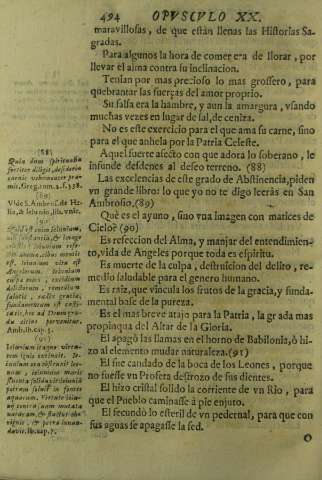 494 OPVSCVLO XX.
maravillosas, de que están llenas las Historias Sa-
gradas.
Para algunos la hora de comer era de llorar, por
llevar el alma contra su inclinacion.
Tenian por mas precioso lo mas grossero, para
quebrantar las fuerças del amor proprio.
Su salsa era la hambre, y aun la amargura, vsando
muchas vezes en lugar de sal, de ceniza.
No es este exercicio para el que ama su carne, sino
para el que anhela por la Patria Celeste.
Aquel fuerte afecto con que adora lo soberano, le
infunde desdenes al afecto terreno. (88)
Las excelencias de este grado de Abstinencia, piden
vn grande libro: lo que yo no te digo leerás en San
Ambrosio. (89)
Què es el ayuno, sino vna imagen con matices de
Cielo? (90)
Es refeccion del Alma, y manjar del entendimien-
to, vida de Angeles porque toda es espiritu.
Es muerte de la culpa, destruicion del delito, re-
medio saludable para el genero humano.
Es raiz, que vincula los frutos de la gracia, y funda-
mental base de la pureza.
Es el mas breve atajo para la Patria, la grada mas
propinqua del Altar de la Gloria.
El apagò las llamas en el horno de Babilonia, ò hi-
zo al elemento mudar naturaleza. (91)
El fue candado de la boca de los Leones, porque
no fuesse vn Profeta destrozo de sus dientes.
El hizo cristal solido la corriente de vn Rio, para
que el Pueblo caminasse à pie enjuto.
El fecundò lo esteril de vn pedernal, para que con
sus aguas se apagasse la sed.
O
(88)
Quia dum spiritualia
fortiter diligit, desideria
carnis vehementer pre-
mit. Greg. tom. 1. f. 538.
(89)
Vide S. Ambros. de He-
lia, & Ieiunio, lib. vnic.
(90)
Quid est enim Ieiunium,
nisi substantia, &
Ieiunium refe-
ctio animæ, cibus mentis
est, Ieiunium vita est
Angelorum. Ieiunium
culpæ mors, excidium
delictorum, remedium
salutis, radix gratiæ,
fundamentum est casti-
tatis, hoc ad Deum gra-
du citius pervenitur.
Amb. lib. cap. 3.
(91)